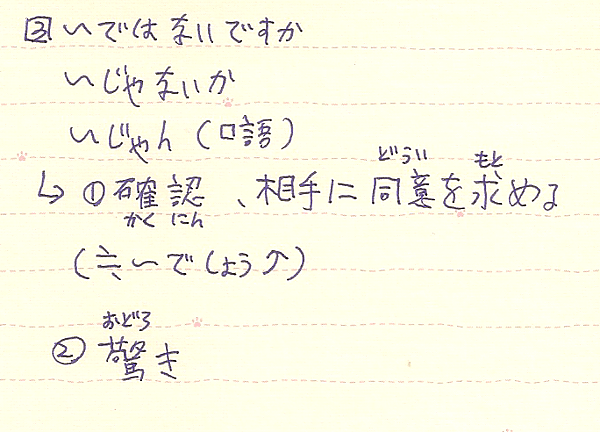 ③ 〜ではないですか
〜じゃないか
〜じゃん (口語)
↳ ①確認、相手に同意を求める
かくにん どうい もと
(≒ 〜でしょう↗)
②驚き
おどろ